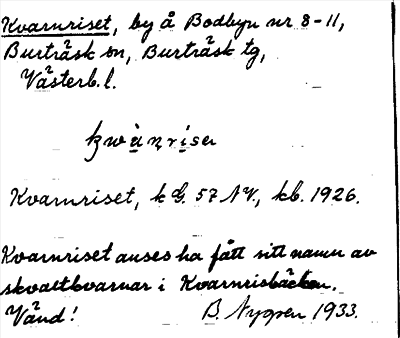 Kvarnriset, by å Bodbyn nr 8-11,
Burträsk sn, Burträsk tg,
Västerb. l.
Kvarnriset, k G. 57 NV., kb. 1926.
Kvarnriset anses ha fått sitt namn av
skvaltkvarnar i Kvarnrisbäcken.
Vänd! B. Nygren 1933.